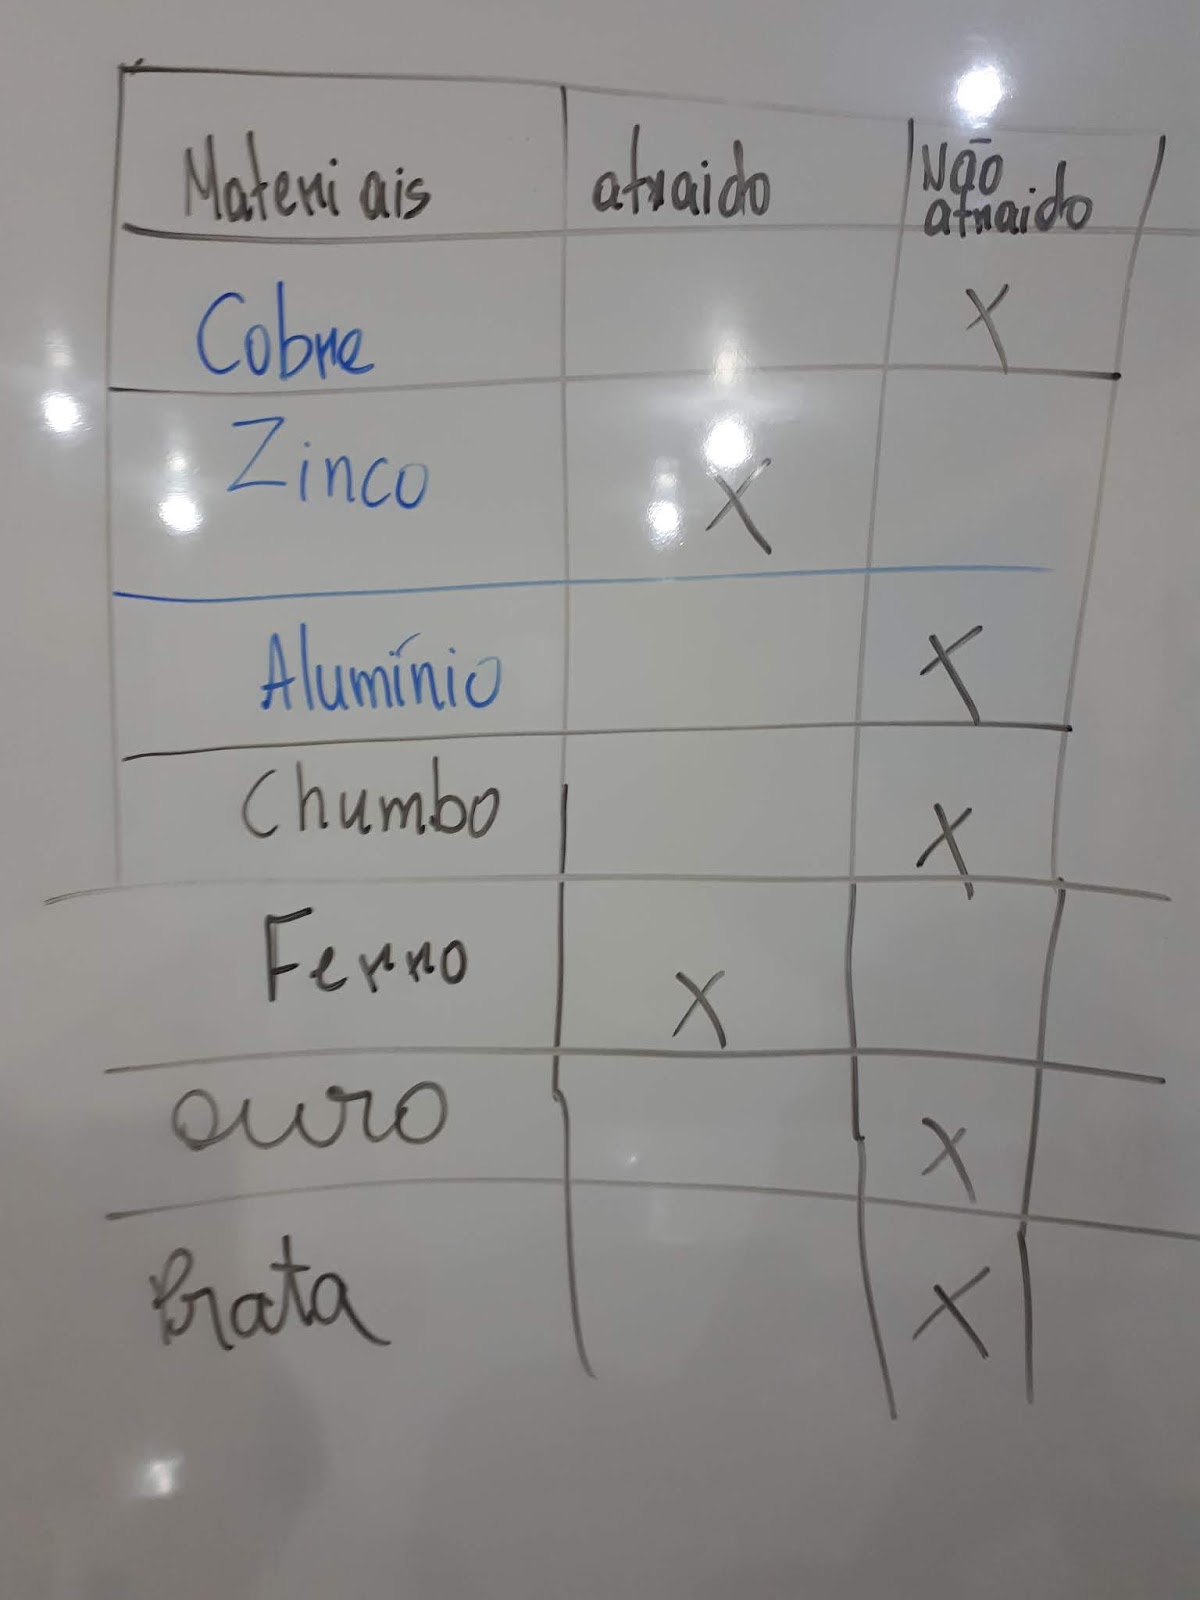 Materiais atraido Não
atraido
Cobre X
Zinco X
Alumínio X
Chumbo X
Ferro X
ouro X
Prata X